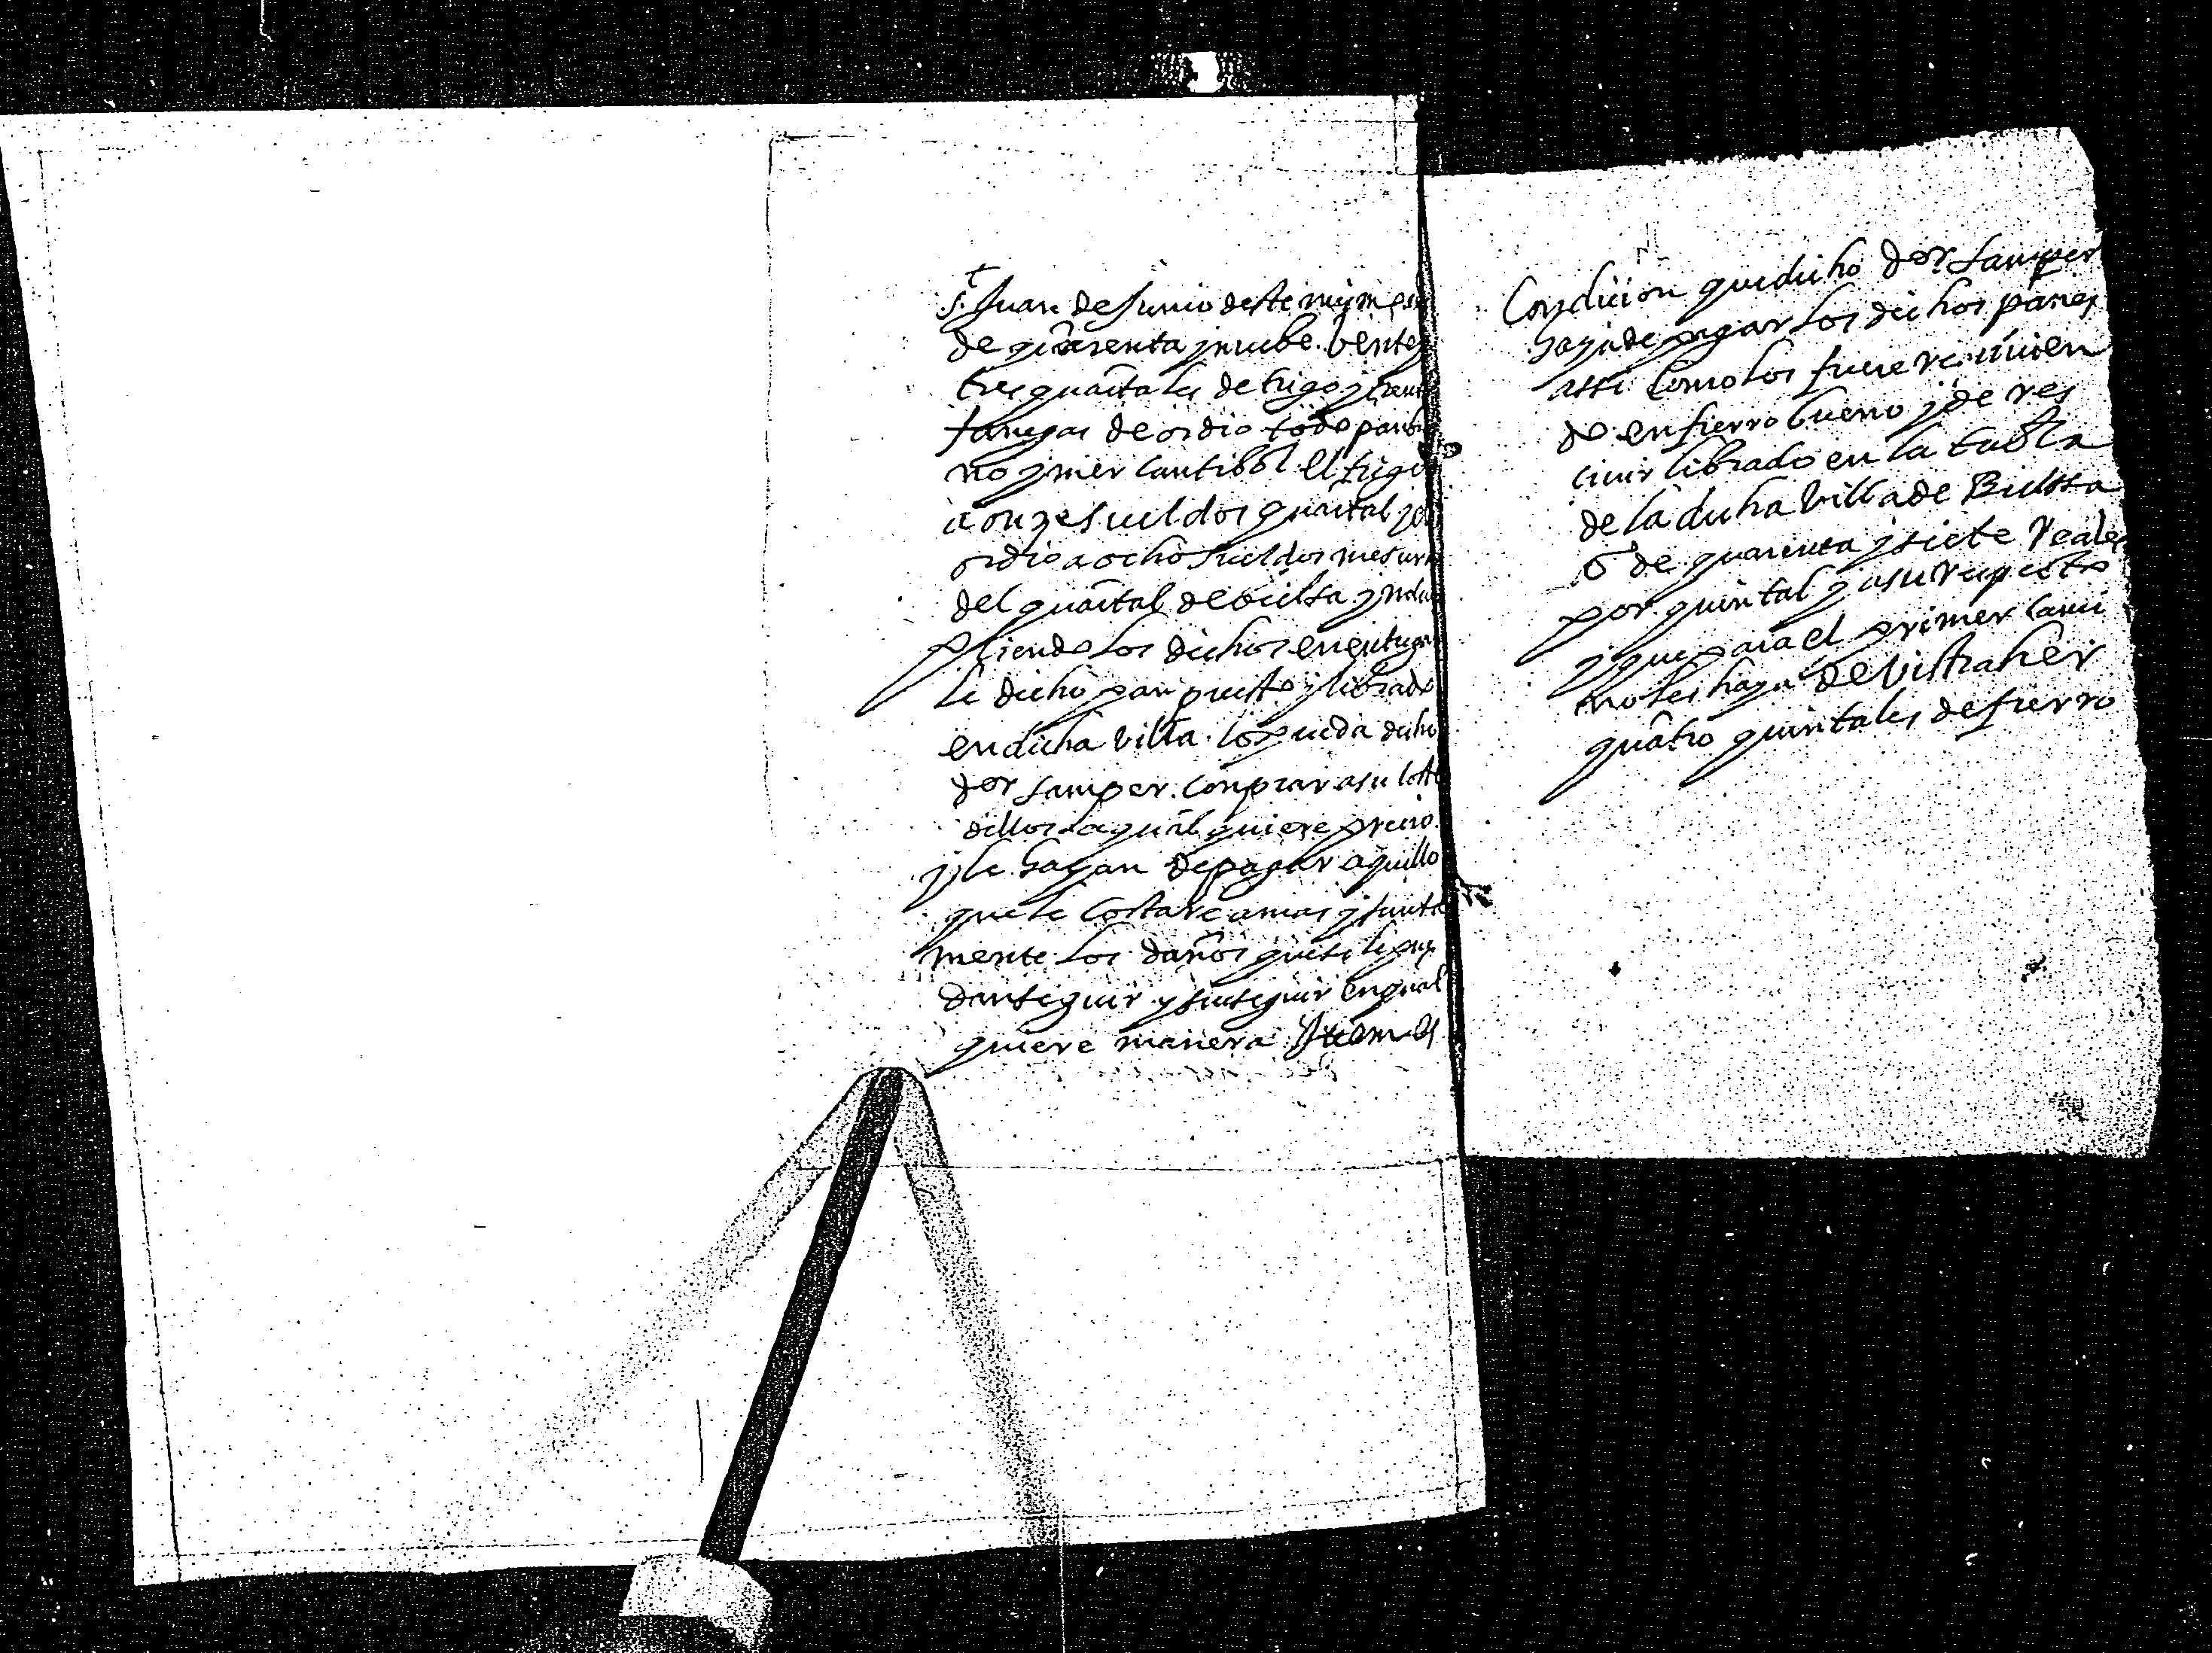 S.t Juan de Junio deste mismo
de quarenta y nuebe. bente y
tres quartales de trigo y
fanegas de ordio todo pan
no y mercantibol El trigo
a onze sueldos quartal y el
ordio a ocho sueldos mesura
del quartal de bielsa y no
pliendo los dichos en entregar
le dicho pan puesto y librado
en dicha billa. lo pueda dicho
der Samper. comprar a su coste
dellos a qual quiere precio.
y le hayan de pagar aquello
que le costare a mas y junta
mente los daños que se le pue
dan seguir y sinseguir en qual
quiere manera Item es
Condicion que dicho der Samper
haya de pagar los dichos panes
assi como los fuere reciuien
do en fierro bueno y de res
ciuir librado en la tabla
de la dicha billa de Bielssa
o de quarenta y siete Reales
por quintal y a su respecto
y que para el primer cami
no les haya de bistraher
quatro quintales de fierro